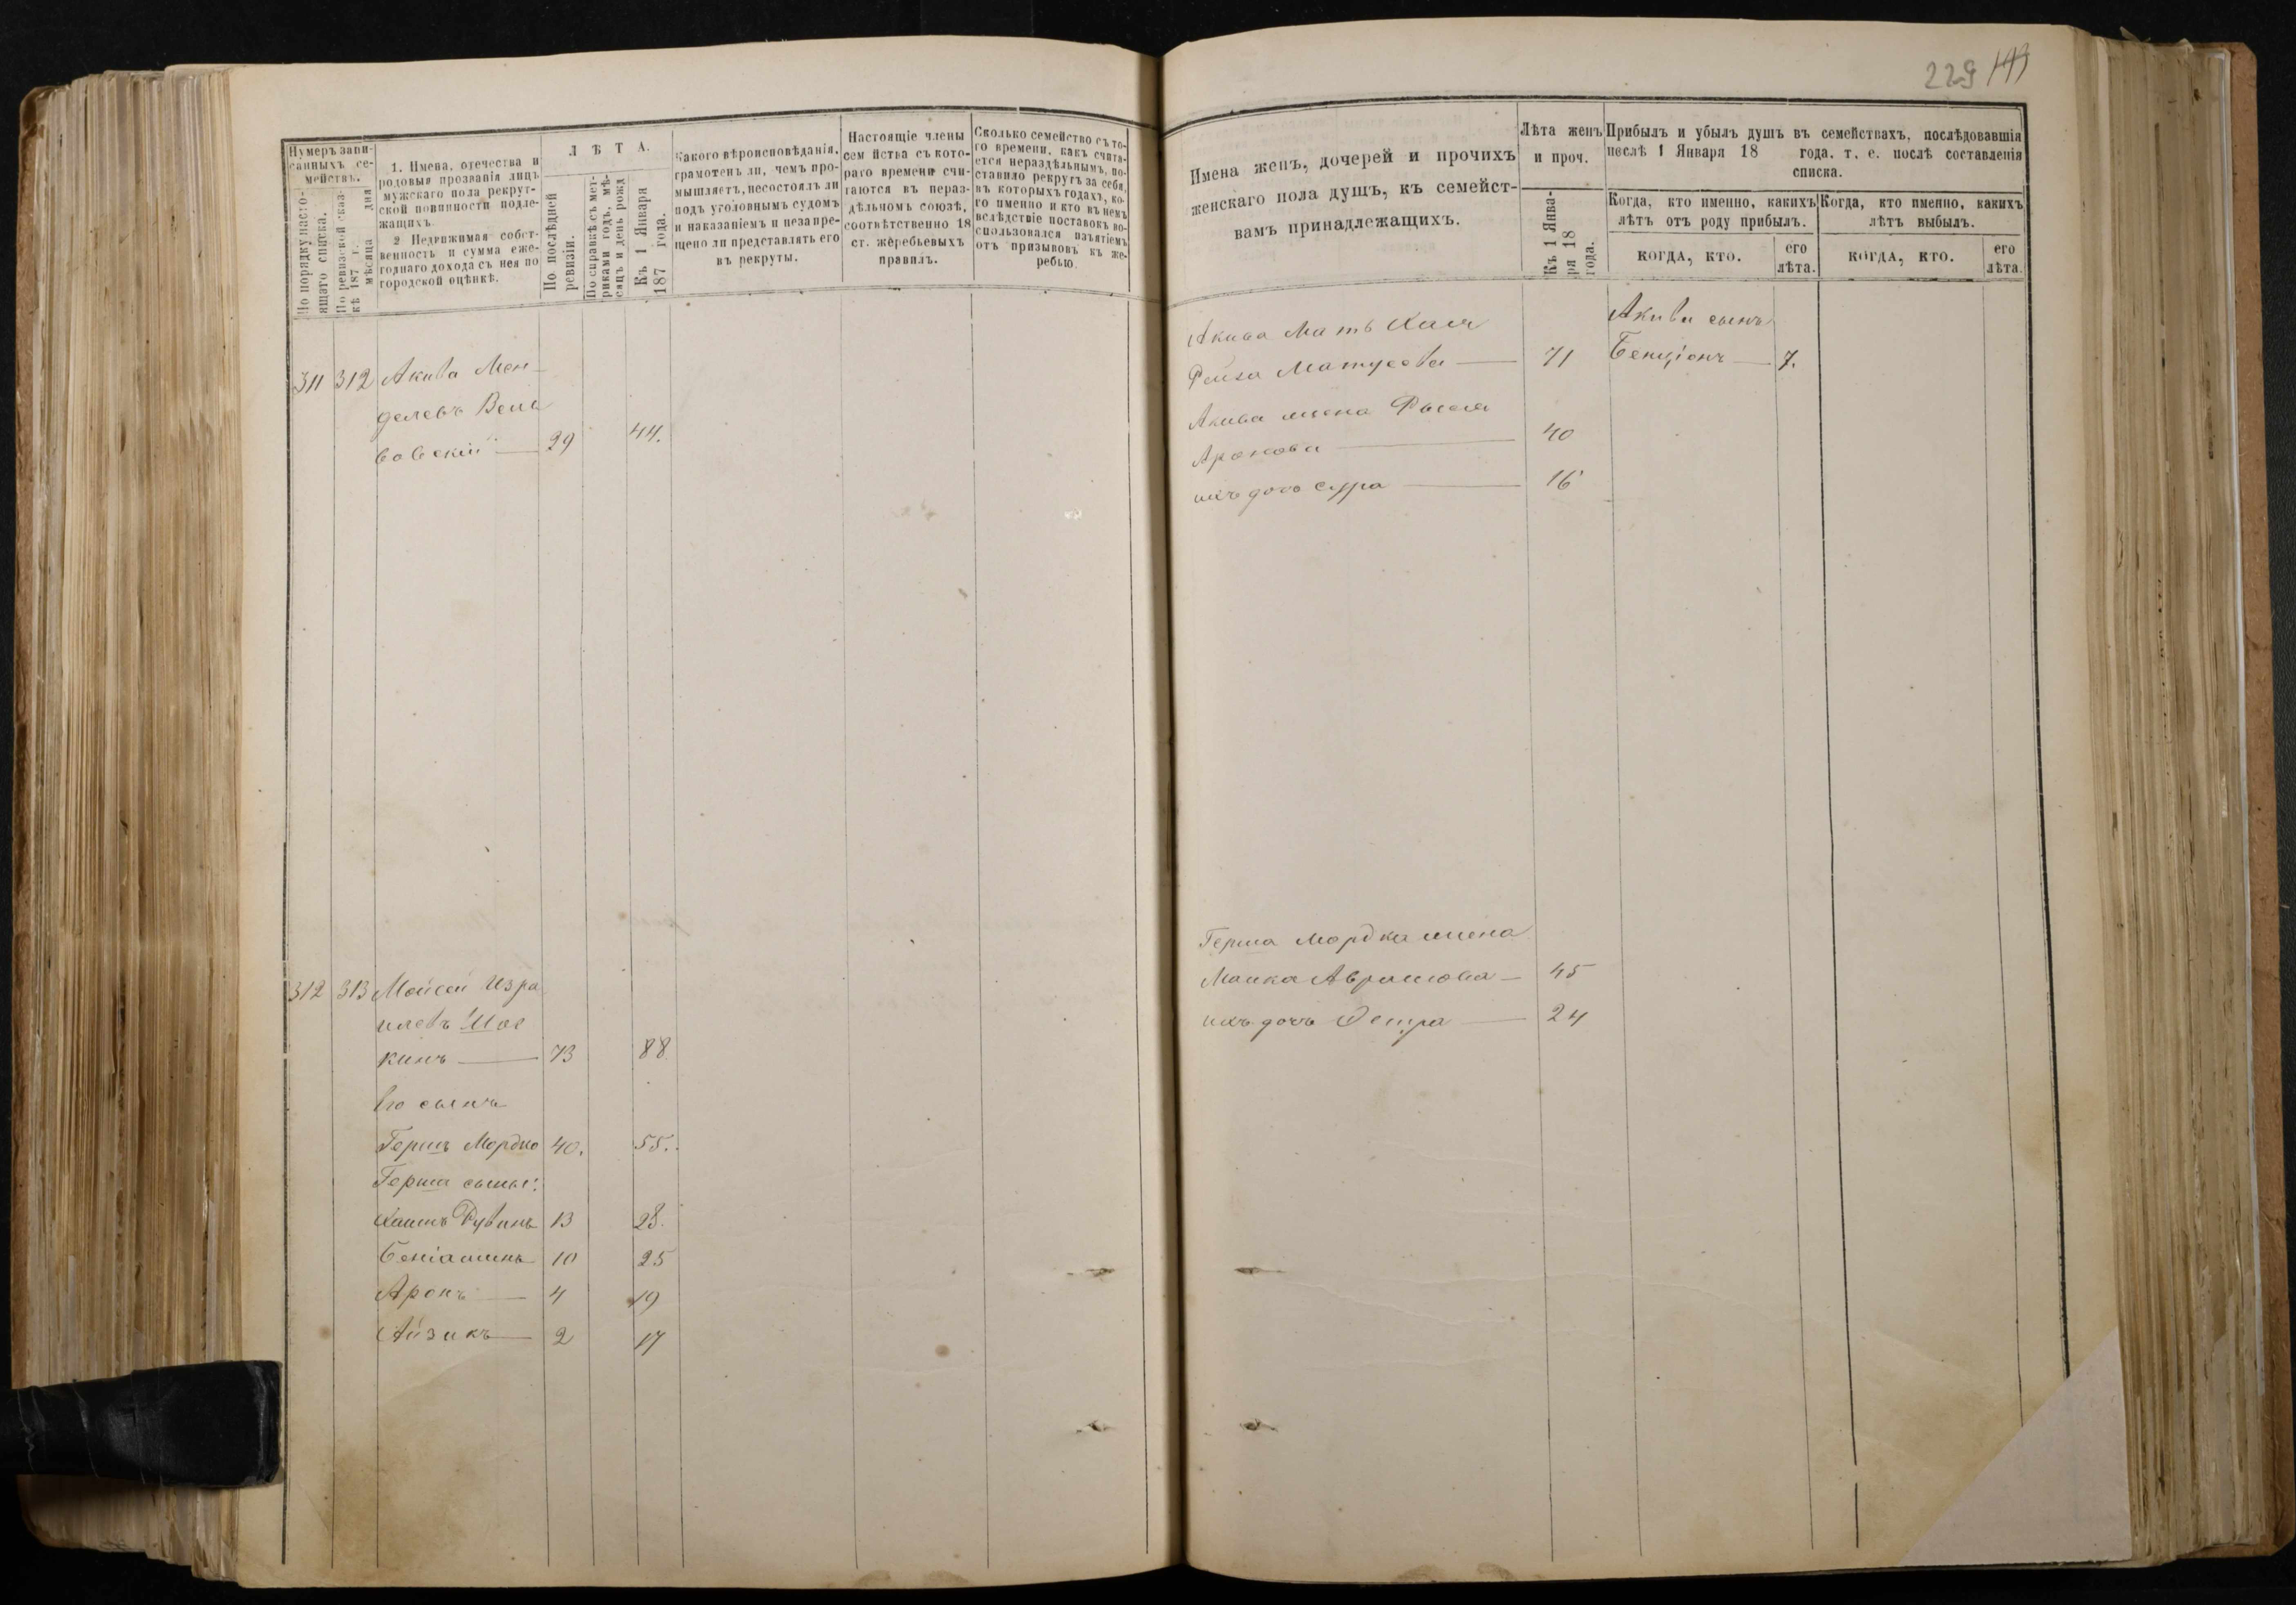 229 143
Нумеръ запи-
санныхъ се-
мействъ.
По порядку насто-
ящаго списка.
По ревизской сказ-
кѣ 187 г.
мѣсяца дня
1. Имена, отечества и
родовыя прозванія лицъ
мужскаго пола рекрут-
ской повинности подле-
жащихъ.
2 Недвижимая собст-
венность и сумма еже-
годнаго дохода съ нея по
городской оцѣнкѣ.
Л Ѣ Т А.
По послѣдней
ревизіи.
По справкѣ съ мет-
риками годъ, мѣ-
сяцъ и день рожд
Къ 1 Января
187 года.
Какого вѣроисповѣданія,
грамотенъ ли, чемъ про-
мышляетъ, несостоялъ ли
подъ уголовнымъ судомъ
и наказаніемъ и незапре-
щено ли представлять его
въ рекруты.
Настоящіе члены
сем йства съ кото-
раго времени счи-
таются въ нераз-
дѣльномъ союзѣ,
соотвѣтственно 18
ст. жеребьевыхъ
правилъ.
Сколько семейство съ то-
го времени, какъ счита-
ется нераздѣльнымъ, по-
ставило рекрутъ за себя,
въ которыхъ годахъ, ко-
го именно и кто въ немъ
вслѣдствіе поставокъ во-
спользовался изъятіемъ
отъ призывовъ къ же-
ребью.
311 312 Акива Мен-
делевъ Вель
вовскій 29 44.
312 313 Мойсей Изра
илевъ Иос
кинъ 73 88
Его сынъ
Гершъ Мордко 40. 55.
Герша сыны:
Хаимъ Рувинъ 13 28.
Беніаминъ 10 25
Аронъ 4 19
Айзикъ 2 17
Имена женъ, дочерей и прочихъ
женскаго пола душъ, къ семейст-
вамъ принадлежащихъ.
Лѣта женъ
и проч.
Къ 1 Янва-
ря 18
года.
Прибылъ и убылъ душъ въ семействахъ, послѣдовавшія
послѣ 1 Января 18 года. т. е. послѣ составленія
списка.
Когда, кто именно, какихъ
лѣтъ отъ роду прибылъ.
КОГДА, КТО.
его
лѣта.
Когда, кто именно, какихъ
лѣтъ выбылъ.
КОГДА, КТО.
его
лѣта.
Акива Мать Хая
Рейза Матусова 71
Акива жена Рысля
Аронова 40
ихъ дочь Сура 16
Акивы сынъ
Бенціонъ 7.
Герша Мордка жена
Малка Абрамова 45
ихъ дочь Эстра 24